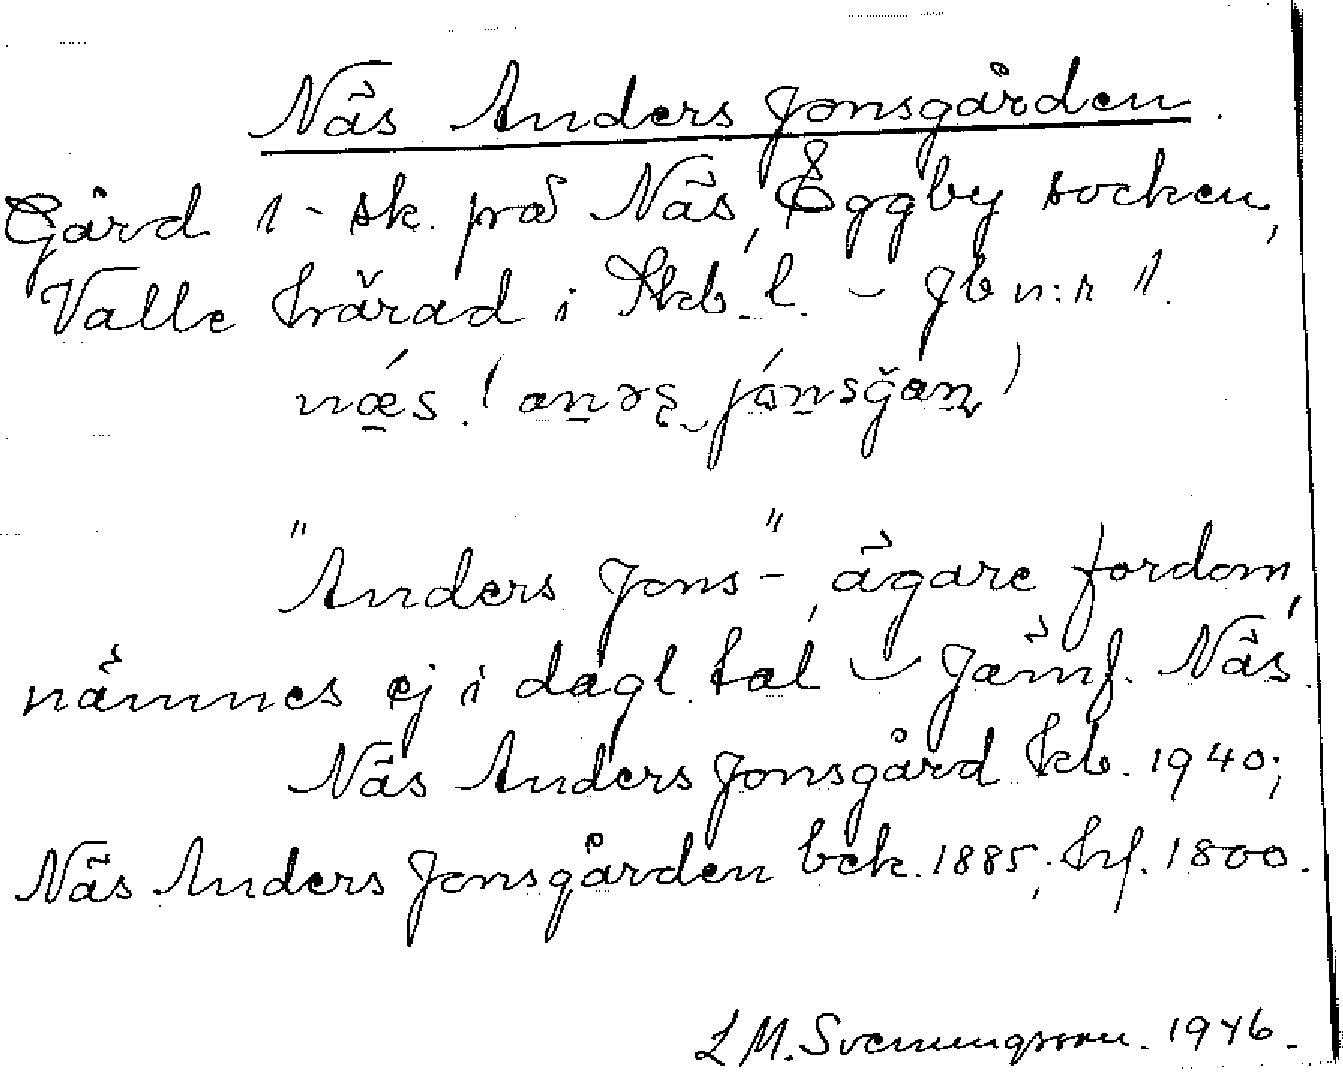 Näs Anders Jonsgården.
Gård 1-sk. på Näs, Eggby socken,
Valle härad i Skb. l. – Jb n:r 1.
næs. (anəʂ jónsgan)
"Anders Jons-", ägare fordom,
nämnes ej i dagl. tal – Jämf. Näs.
Näs Anders Jonsgård kb. 1940;
Näs Anders Jonsgården bek. 1885; hf. 1800.
L M. Svenungsson. 1946.